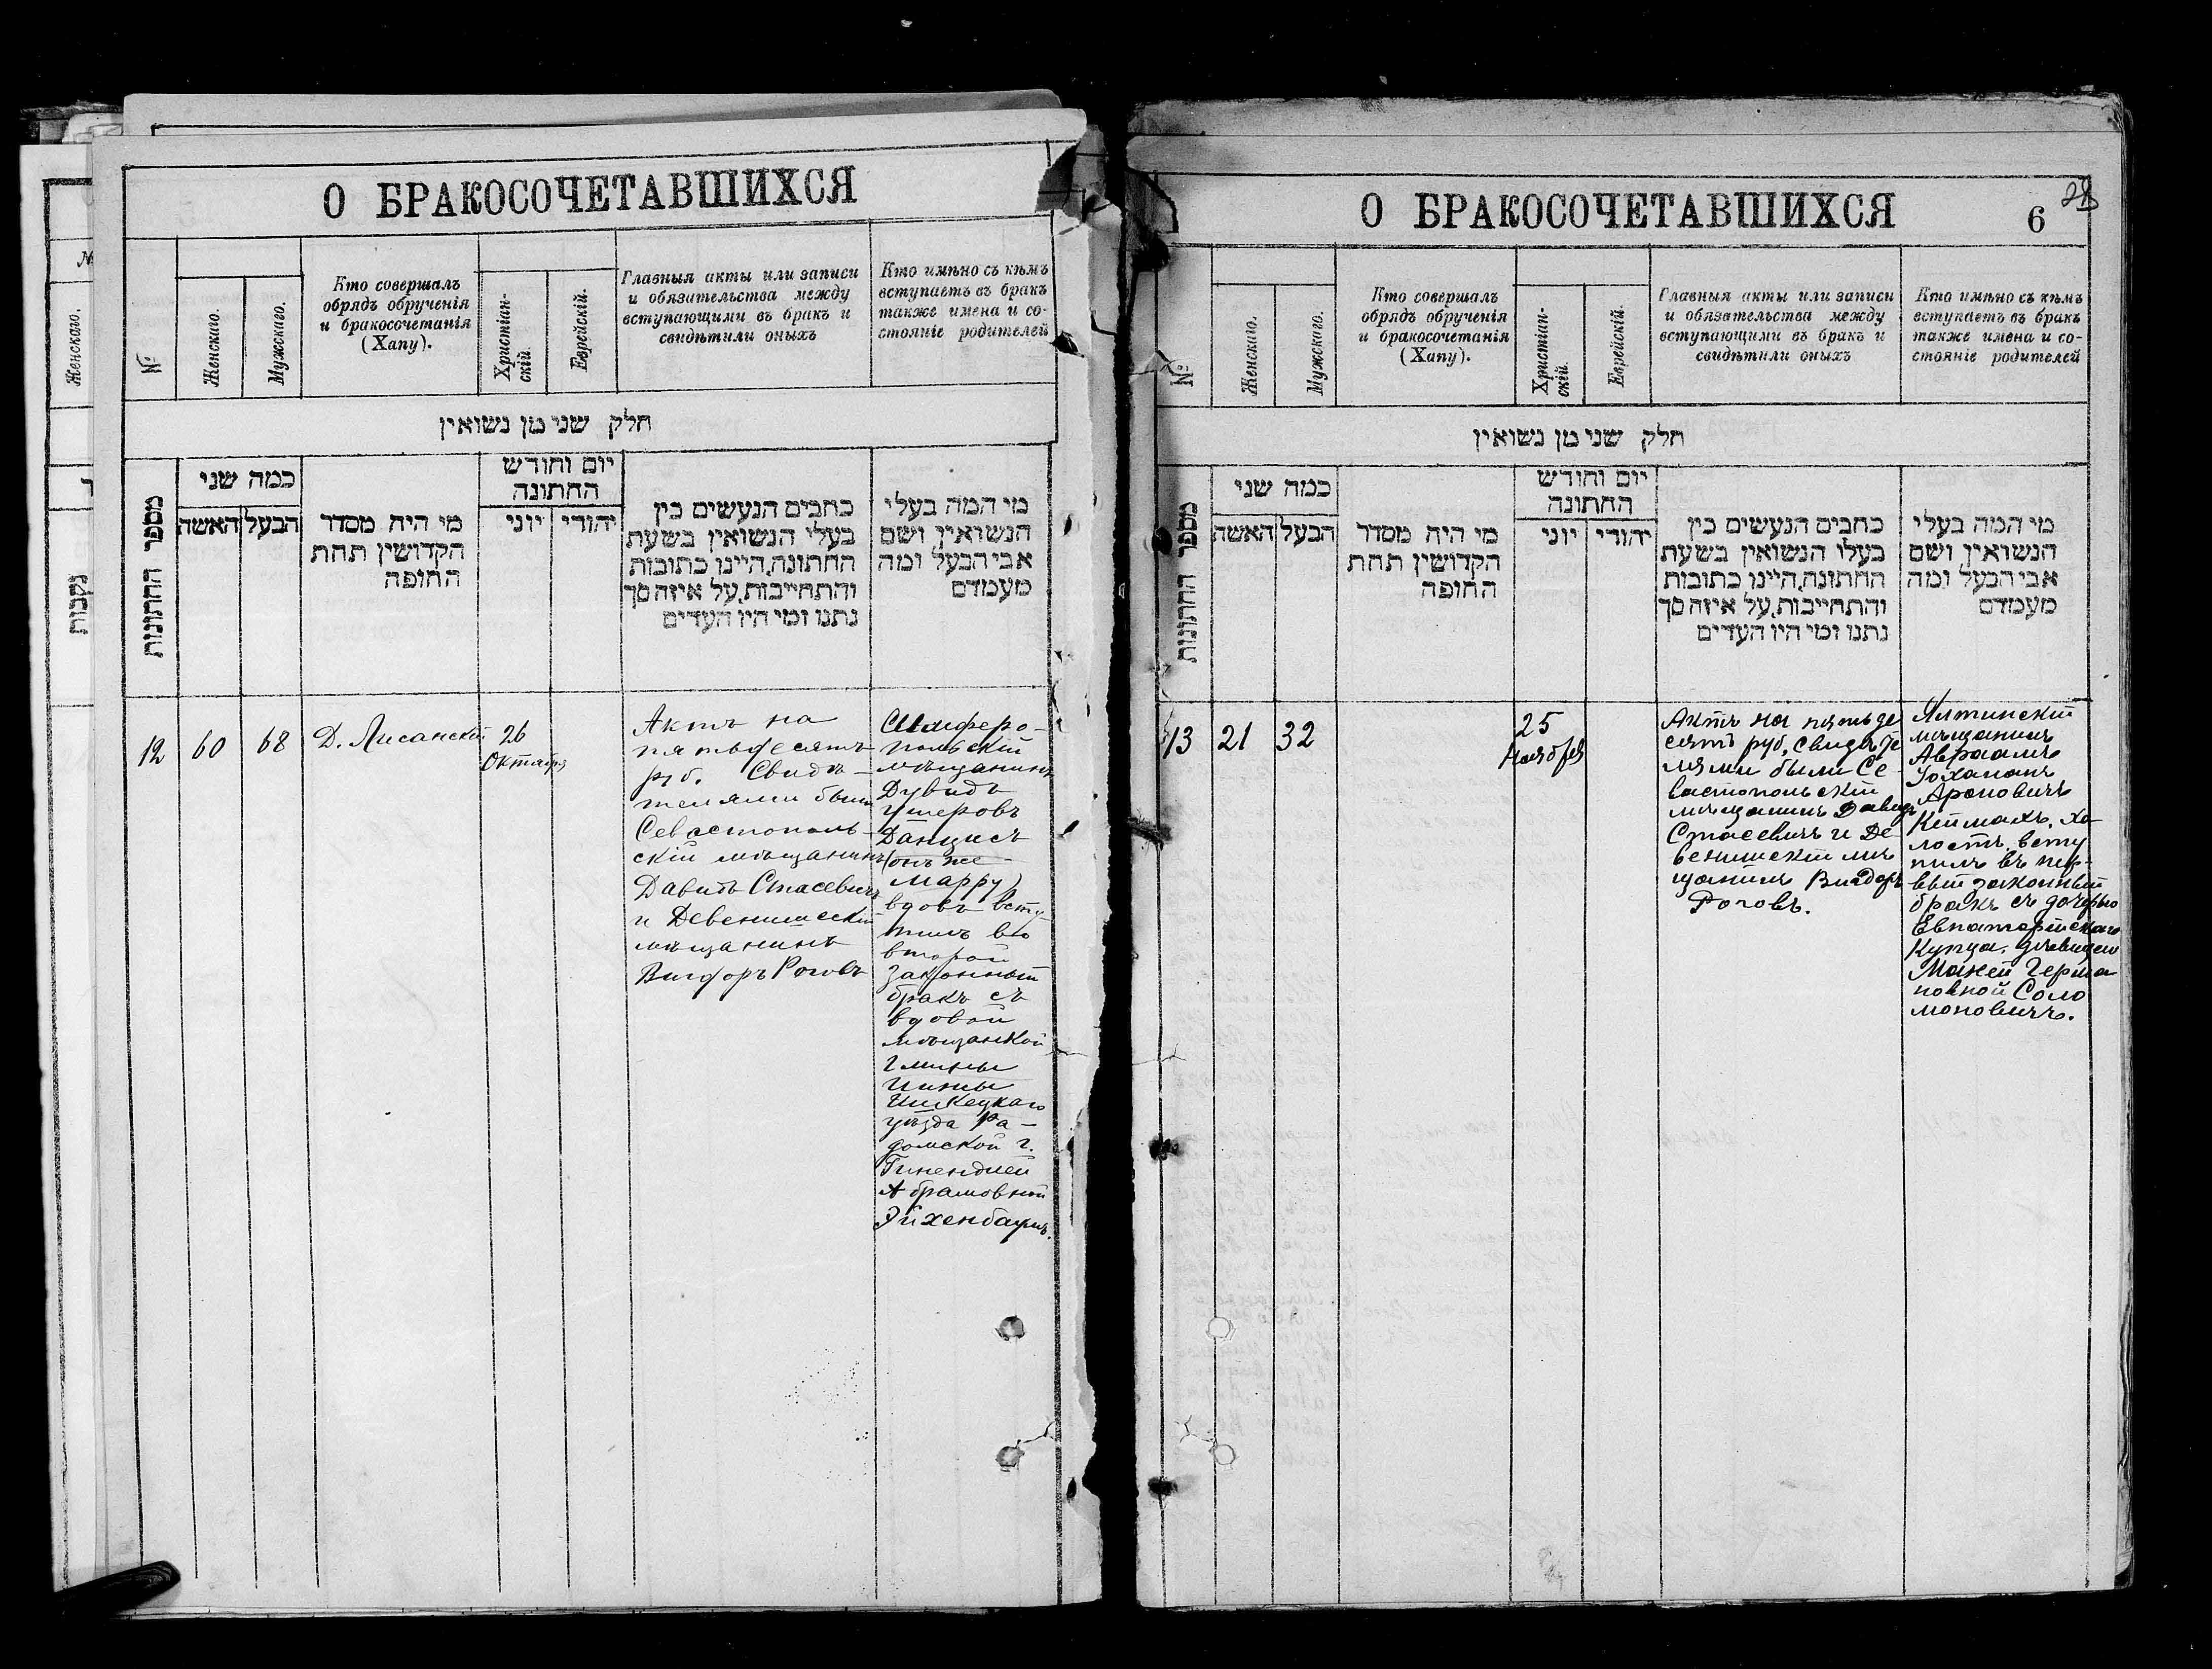 О БРАКОСОЧЕТАВШИХСЯ
№
Женскаго.
Мужскаго.
Кто совершалъ
обрядъ обрученія
и бракосочетанія
(Хапу).
Христіан-
скій.
Еврейскій.
Главныя акты или записи
и обязательства между
вступающими въ бракъ и
свидѣтили оныхъ
Кто имѣно съ кѣмъ
вступаетъ въ бракъ
также имена и со-
стояніе родителей
חלק שני מן נשואין
מספר החתונות
כמה שני
האשה
הבעל
מי היה מסדר
הקדושין תחת
החופה
יום וחודש
החתונה
יוני
יהודי
כתבים הנעשים בין
בעלי הנשואין בשעת
החתונה,היינו כתובות
והתחייבות,על איזה סך
נתנו ומי היו העדים
מי המה בעלי
הנשואין ושם
אבי הבעל ומה
מעמדם
12
60
68
Д. Лисанскій
26
Октября
Актъ на
пятьдесятъ
руб. Свидѣ-
телями были
Севастополь-
скій мѣщанинъ
Давидъ Стасевичъ
и Девенишескій
мѣщанинъ
Вигдоръ Роговъ
Симферо-
польскій
мѣщанинъ
Дувидъ
Умеровъ
Данцисъ
(онъ же
Марру)
вдовъ всту-
пилъ во
второй
законный
бракъ съ
вдовой
мѣщанкой
гмины
уѣзда Ра-
домской г.
Абрамовной
Эйхенбаумъ.
Женскаго.
נקבות
О БРАКОСОЧЕТАВШИХСЯ
6
№
Женскаго.
Мужскаго.
Кто совершалъ
обрядъ обрученія
и бракосочетанія
(Хапу).
Христіан-
скій.
Еврейскій.
Главныя акты или записи
и обязательства между
вступающими въ бракъ и
свидѣтили оныхъ
Кто имѣно съ кѣмъ
вступаетъ въ бракъ
также имена и со-
стояніе родителей
חלק שני מן נשואין
מספר החתונות
כמה שני
האשה
הבעל
מי היה מסדר
הקדושין תחת
החופה
יום וחודש
החתונה
יוני
יהודי
כתבים הנעשים בין
בעלי הנשואין בשעת
החתונה,היינו כתובות
והתחייבות,על איזה סך
נתנו ומי היו העדים
מי המה בעלי
הנשואין ושם
אבי הבעל ומה
מעמדם
13
21
32
25
Ноября
Актъ на пятьде
сятъ руб. Свидѣте
лями были Се-
вастопольскій
мѣщанинъ Давидъ
Стасевичъ и Де
венишескій мѣ
щанинъ Вигдоръ
Роговъ.
Ялтинскій
мѣщанинъ
Авраамъ
Іохананъ
Ароновичъ
Кеймахъ, хо-
лостъ, всту
пилъ въ пер-
вый законный
бракъ съ дочерью
Евпаторійскаго
купца, дѣвицею
Маней Герма
новной Соло
моновичъ.